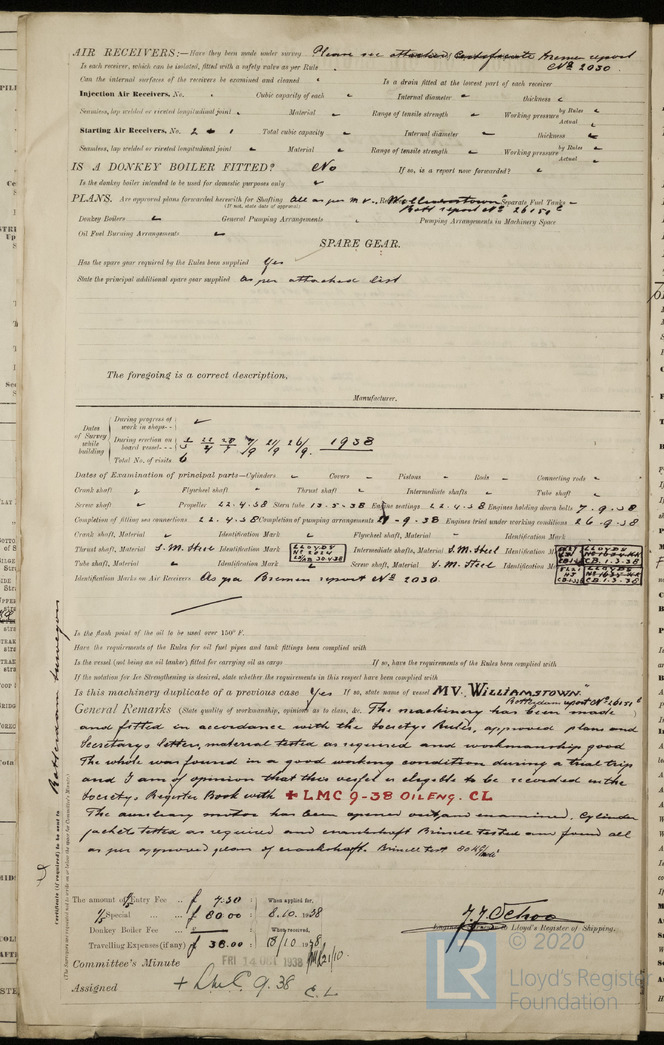 AIR RECEIVERS:—Have they been made under survey Please see attached Certificate Bremen report
Is each receiver, which can be isolated, fitted with a safety valve as per Rule No 2030.
Can the internal surfaces of the receivers be examined and cleaned Is a drain fitted at the lowest part of each receiver
Injection Air Receivers, No. Cubic capacity of each Internal diameter thickness
Seamless, lap welded or riveted longitudinal joint Material Range of tensile strength Working pressure by Rules Actual
Starting Air Receivers, No. 2 + 1 Total cubic capacity Internal diameter thickness
Seamless, lap welded or riveted longitudinal joint Material Range of tensile strength Working pressure by Rules Actual
IS A DONKEY BOILER FITTED? No If so, is a report now forwarded?
Is the donkey boiler intended to be used for domestic purposes only
PLANS. Are approved plans forwarded herewith for Shafting All as per M.V. Separate Fuel Tanks
(If not, state date of approval) report No 26151
Donkey Boilers General Pumping Arrangements Pumping Arrangements in Machinery Space
Oil Fuel Burning Arrangements
SPARE GEAR.
Has the spare gear required by the Rules been supplied Yes
State the principal additional spare gear supplied as per attached list
The foregoing is a correct description,
Manufacturer.
Dates of Survey while building
During progress of work in shops - -
During erection on board vessel - - 1938
Total No. of visits 6
Dates of Examination of principal parts—Cylinders Covers Pistons Rods Connecting rods
Crank shaft Flywheel shaft Thrust shaft Intermediate shafts Tube shaft
Screw shaft Propeller 22.4.38 Stern tube 13.5.38 Engine seatings 22.4.38 Engines holding down bolts 7.9.38
Completion of fitting sea connections 22.4.38 Completion of pumping arrangements 21.9.38 Engines tried under working conditions 26.9.38
Crank shaft, Material Identification Mark Flywheel shaft, Material Identification Mark
Thrust shaft, Material S.M. Steel Identification Mark LLOYDS Intermediate shafts, Material S.M. Steel Identification Marks LLOYDS
Tube shaft, Material Identification Mark Screw shaft, Material S.M. Steel Identification Mark LLOYDS
Identification Marks on Air Receivers As per Bremen report No 2030
Is the flash point of the oil to be used over 150° F.
Have the requirements of the Rules for oil fuel pipes and tank fittings been complied with
Is the vessel (not being an oil tanker) fitted for carrying oil as cargo If so, have the requirements of the Rules been complied with
If the notation for Ice Strengthening is desired, state whether the requirements in this respect have been complied with
Is this machinery duplicate of a previous case Yes If so, state name of vessel MV. "WILLIAMSTOWN"
Rotterdam report No 26151
General Remarks (State quality of workmanship, opinions as to class, &c. The machinery has been made
and fitted in accordance with the Society's Rules, approved plans and
Secretary's letters, material tested as required and workmanship good
The whole was found in a good working condition during a trial trip
and I am of opinion that this vessel is eligible to be recorded in the
Society's Register Book with + LMC 9-38 OIL ENG. CL
The auxiliary motor has been opened out and examined. Cylinder
jackets tested as required and crankshaft Brinell tested and found all
as per approved plan of crankshaft. Brinell test
Rotterdam Surveyors
Certificate (if required) to be sent to
(The Surveyors are requested not to write on or below the space for Committee's Minute.)
The amount of Entry Fee .. £ 7.50 When applied for,
Special ... £ 80.00 8.10.1938
Donkey Boiler Fee ... £ When received,
Travelling Expenses (if any) £ 38.00
Engineer Surveyor to Lloyd's Register of Shipping.
Committee's Minute FRI 14 OCT 1938
Assigned + LMC 9.38
C.L
LR
© 2020
Lloyd's Register
Foundation